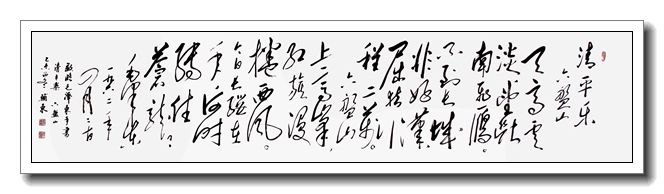 清平乐
六盘山
天高云
淡望断
南飞雁
不到长城
非好汉
屈指行
程二万
六盘山
上高峰
红旗漫
卷西风
今日长缨在
手何时
缚住
苍龙
毛泽东
一九六一年
月
毛泽东手书
清平乐六盘山